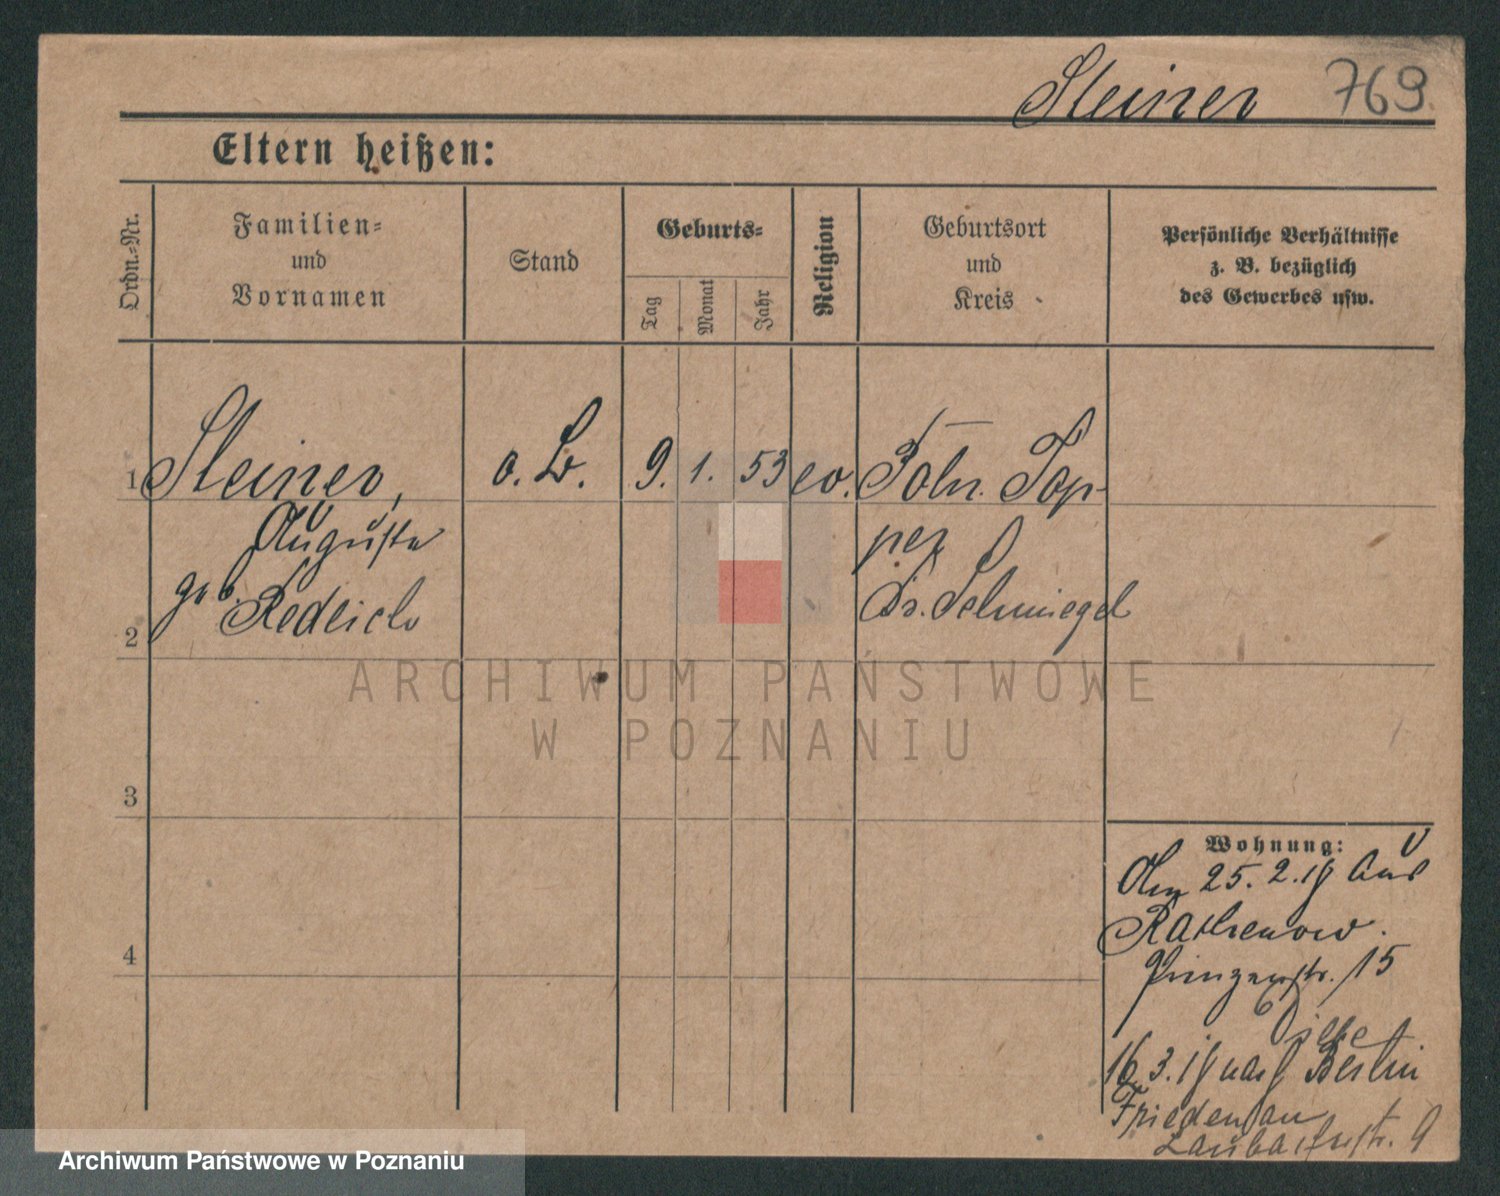 Steiner 769.
Eltern heißen:
Ordn.-Nr.
Familien-
und
Vornamen
Stand
Geburts-
Tag
Monat
Jahr
Religion
Geburtsort
und
Kreis
Persönliche Verhältnisse
z. B. bezüglich
des Gewerbes usw.
1 Steiner, 9. 1. 53 ev. Poln. Pop-
Auguste pen
geb. Redlich Kr. Schmiegel
2
3
4
Wohnung:
Am 25.2.19 aus
Rathenow.
Prinzenstr. 15
16.3.19 nach Berlin
Friedenau
Laubacherstr. 9
ARCHIWUM PAŃSTWOWE
W POZNANIU
Archiwum Państwowe w Poznaniu